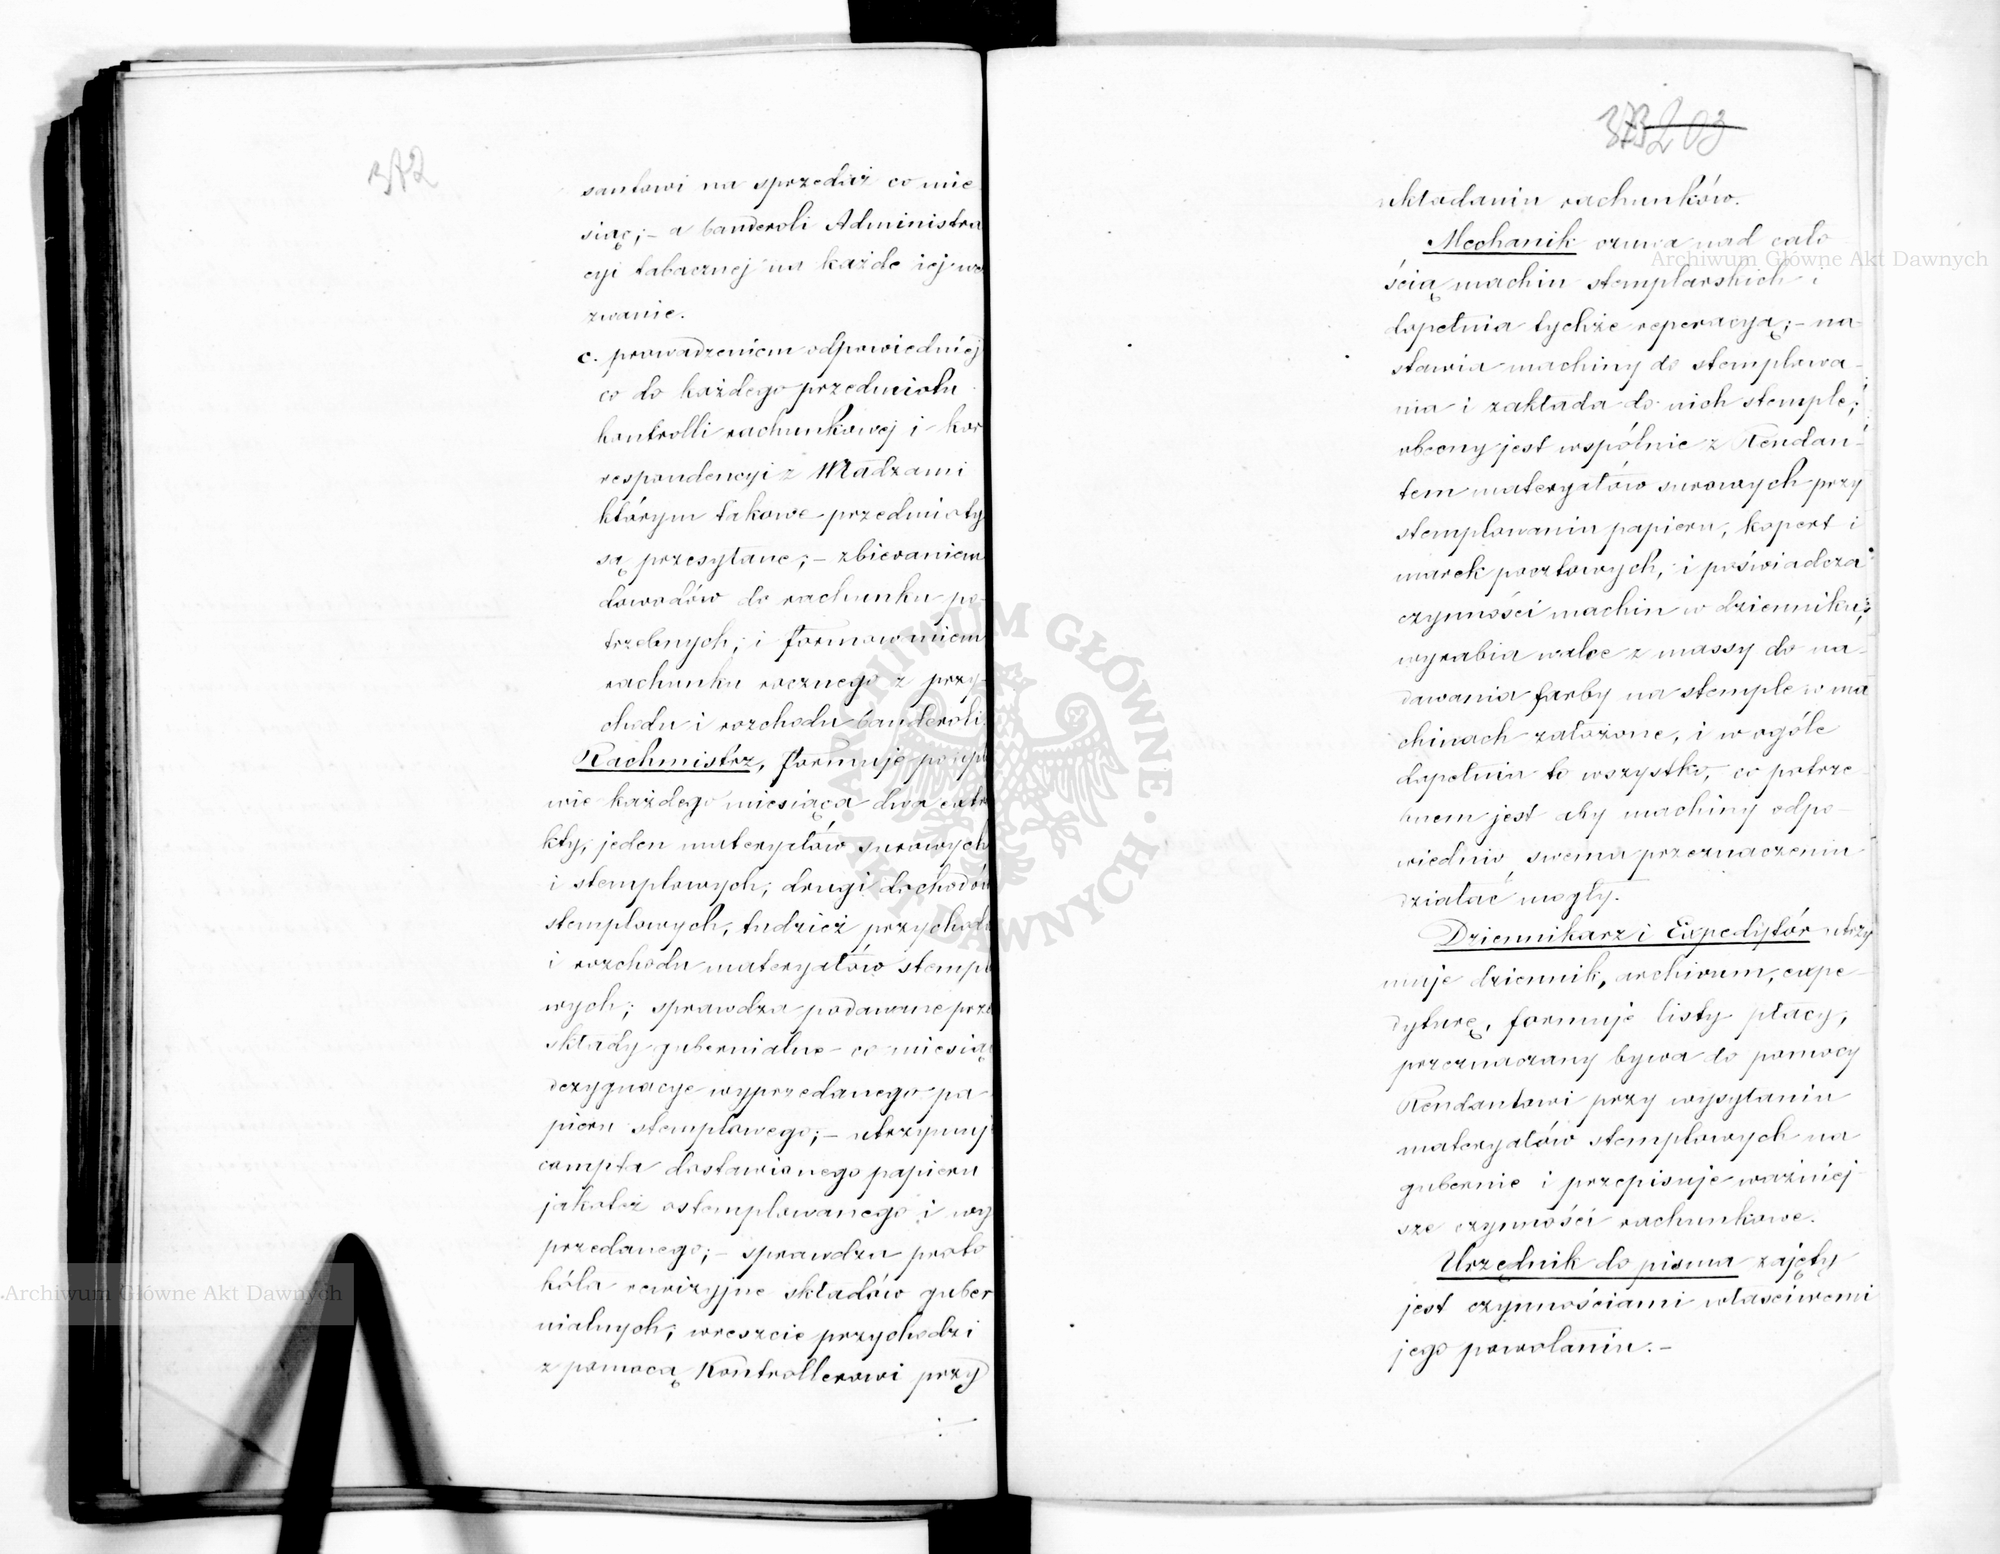 372
santowi na sprzedaż co mie
siąc; – a banderoli Administra
cyi tabacznej na każde iej we
zwanie.
c. prowadzeniem odpowiedniej
co do każdego przedmiotu
kontrolli rachunkowej i kor
respondencyi z Władzami
którym takowe przedmioty
są przesyłane; – zbieraniem
dowodów do rachunku po-
trzebnych; i formowaniem
rachunku rocznego z przy-
chodu i rozchodu banderoli.
Rachmistrz, formuje po upły
wie każdego miesiąca dwa extra
kty, jeden materyałów surowych
i stemplowych, drugi dochodów
stemplowych, tudzież przychodu
i rozchodu materyałów stemplo
wych; sprawdza podawane przez
składy gubernialne co miesiąc
dezygnacye wyprzedanego pa-
pieru stemplowego; – utrzymuje
compta dostawionego papieru
jakoteż ostemplowanego i wy
przedanego; – sprawdza proto
kóła rewizyjne składów guber
nialnych; wreszcie przychodzi
z pomocą Kontrollerowi przy
373 203
składaniu rachunków.
Mechanik czuwa nad cało
ścią machin stemplarskich i
dopełnia tychże reperacyą; – na-
stawia machiny do stemplowa-
nia i zakłada do nich stemple;
obecny jest wspólnie z Rendan-
tem materyałów surowych przy
stemplowaniu papieru, kopert i
marek pocztowych, i poświadcza
czynności machin w dzienniku;
wyrabia walce z massy do na-
dawania farby na stemple w ma
chinach założone, i w ogóle
dopełnia to wszystko, co potrze-
bnem jest aby machiny odpo-
wiednio swemu przeznaczeniu
działać mogły.
Dziennikarz i Expedytór utrzy
muje dziennik, archiwum, expe-
dyturę, formuje listy płacy,
przeznaczany bywa do pomocy
Rendantowi przy wysyłaniu
materyałów stemplowych na
gubernie i przepisuje ważniej
sze czynności rachunkowe.
Urzędnik do pisma zajęty
jest czynnościami właściwemi
jego powołaniu. –
Archiwum Główne Akt Dawnych
Archiwum Główne Akt Dawnych
ARCHIWUM GŁÓWNE
AKT DAWNYCH